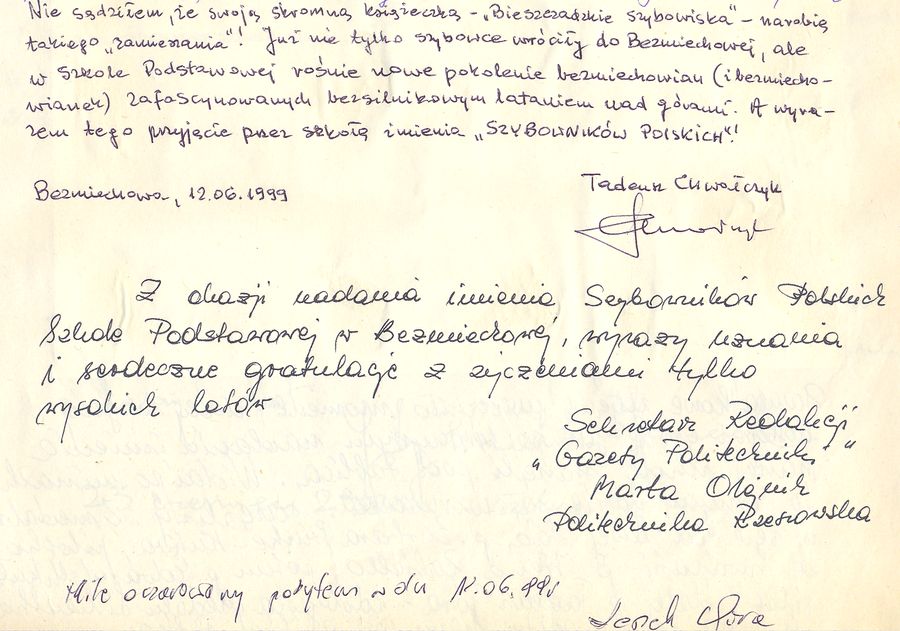 Nie sądziłem, że swoją skromną książeczką - „Bieszczadzkie szybowiska” - narobię
takiego „zamieszania”! Już nie tylko szybowce wróciły do Bezmiechowej, ale
w Szkole Podstawowej rośnie nowe pokolenie bezmiechowian (i bezmiecho-
wianek) zafascynowanych bezsilnikowym lataniem nad górami. A wyra-
zem tego przyjęcie przez szkołę imienia „SZYBOWNIKÓW POLSKICH”!
Bezmiechowa, 12.06.1999
Tadeusz Chwałczyk
Z okazji nadania imienia Szybowników Polskich
Szkole Podstawowej w Bezmiechowej, wyrazy uznania
i serdeczne gratulacje z życzeniami tylko
wysokich lotów
Sekretarz Redakcji
„Gazety Politechniki”
Marta Olejnik
Politechnika Rzeszowska
Mile oczarowany pobytem w dn 12.06.99r